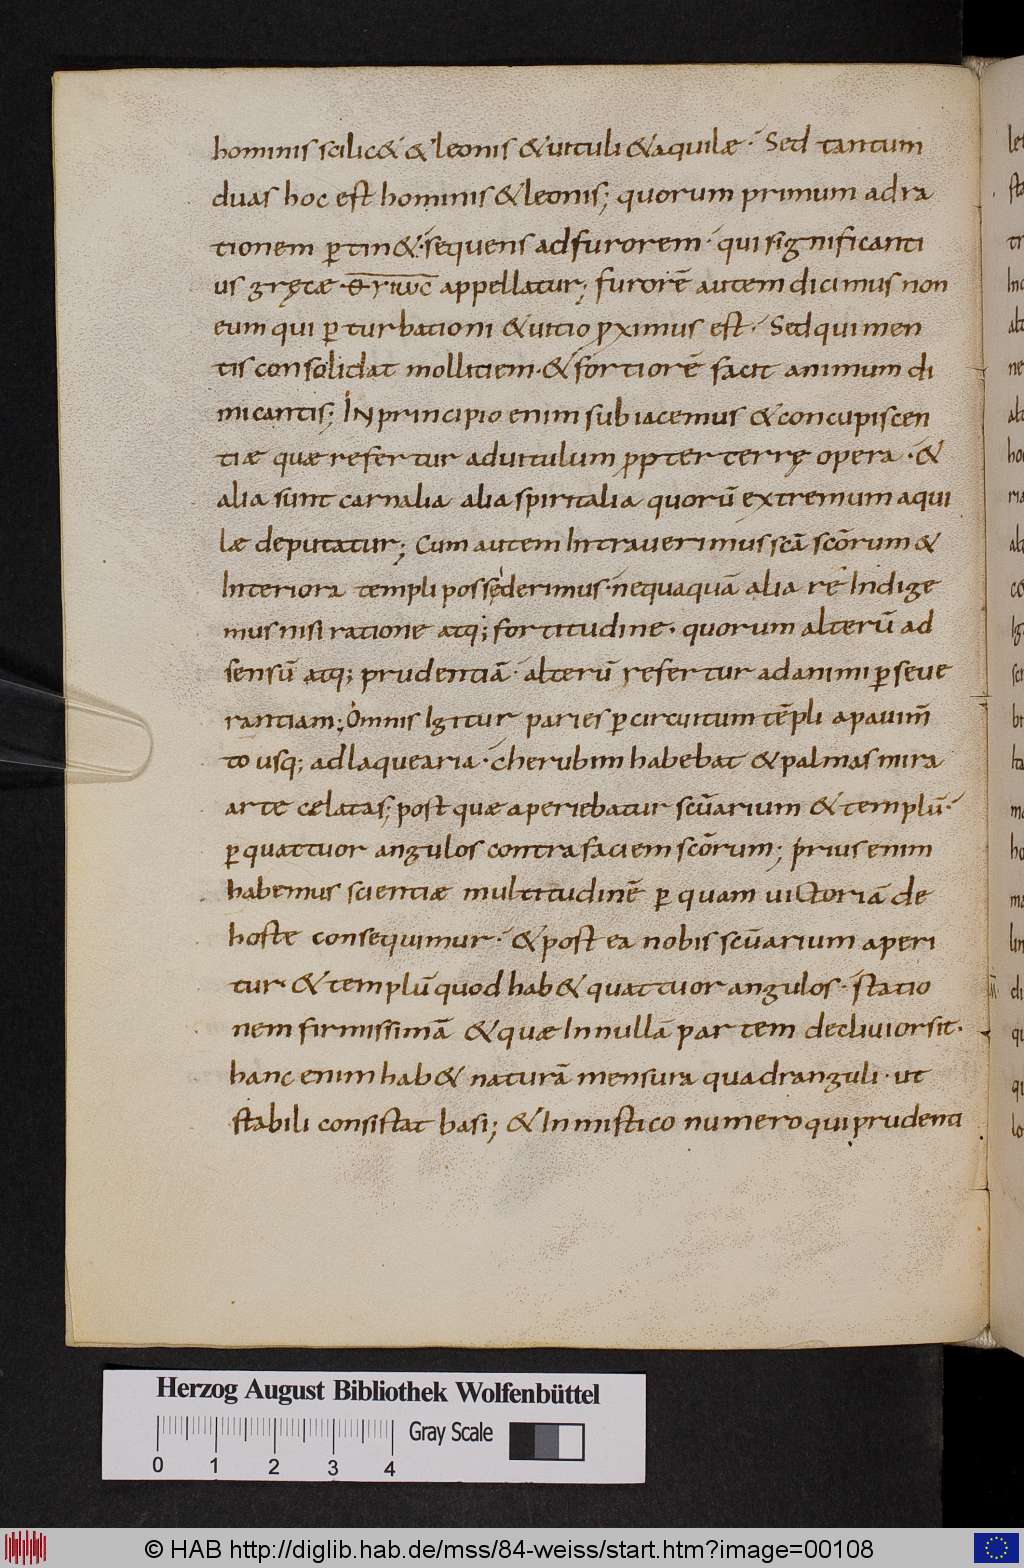 hominis scilic& & leonis & uituli & aquilæ · Sed tantum
duas hoc est hominis & leonis; quorum primum ad ra
tionem ꝑtin& · sequens ad furorem · qui significanti
us gręcæ appellatur; furorē autem dicimus non
eum qui ꝑturbationi & uitio ꝓximus est · Sed qui men
tis consolidat mollitiem · & fortiorē facit animum di
micantis; IN principio enim subiacemus & concupiscen
tiæ quæ refertur ad uitulum ꝓpter terrę opera · &
alia sunt carnalia alia spiritalia quorū extremum aqui
læ deputatur; Cum autem Intrauerimus scā scōrum &
Interiora templi possęderimus · nequaquā alia re Indige
mus nisi ratione atq; fortitudine · quorum alterū ad
sensū atq; prudentiā · alterū refertur ad animi ꝑseue
rantiam; Omnis Igitur paries ꝑ circuitum tēpli a pauim̄
to usq; ad laquearia · cherubim habebat & palmas mira
arte celatas; post quæ aperiebatur scūarium & templū ·
ꝑ quattuor angulos contra faciem scōrum; prius enim
habemus scientiæ multitudinē ꝑ quam uictoriā de
hoste consequimur · & post ea nobis scūarium aperi
tur · & templū quod hab& quattuor angulos · statio
nem firmissimā & quæ In nullā partem decliuior sit ·
hanc enim hab& naturā mensura quadranguli · ut
stabili consistat basi; & In mistico numero qui prudenti
Herzog August Bibliothek Wolfenbüttel
Gray Scale
0 1 2 3 4
© HAB http://diglib.hab.de/mss/84-weiss/start.htm?image=00108